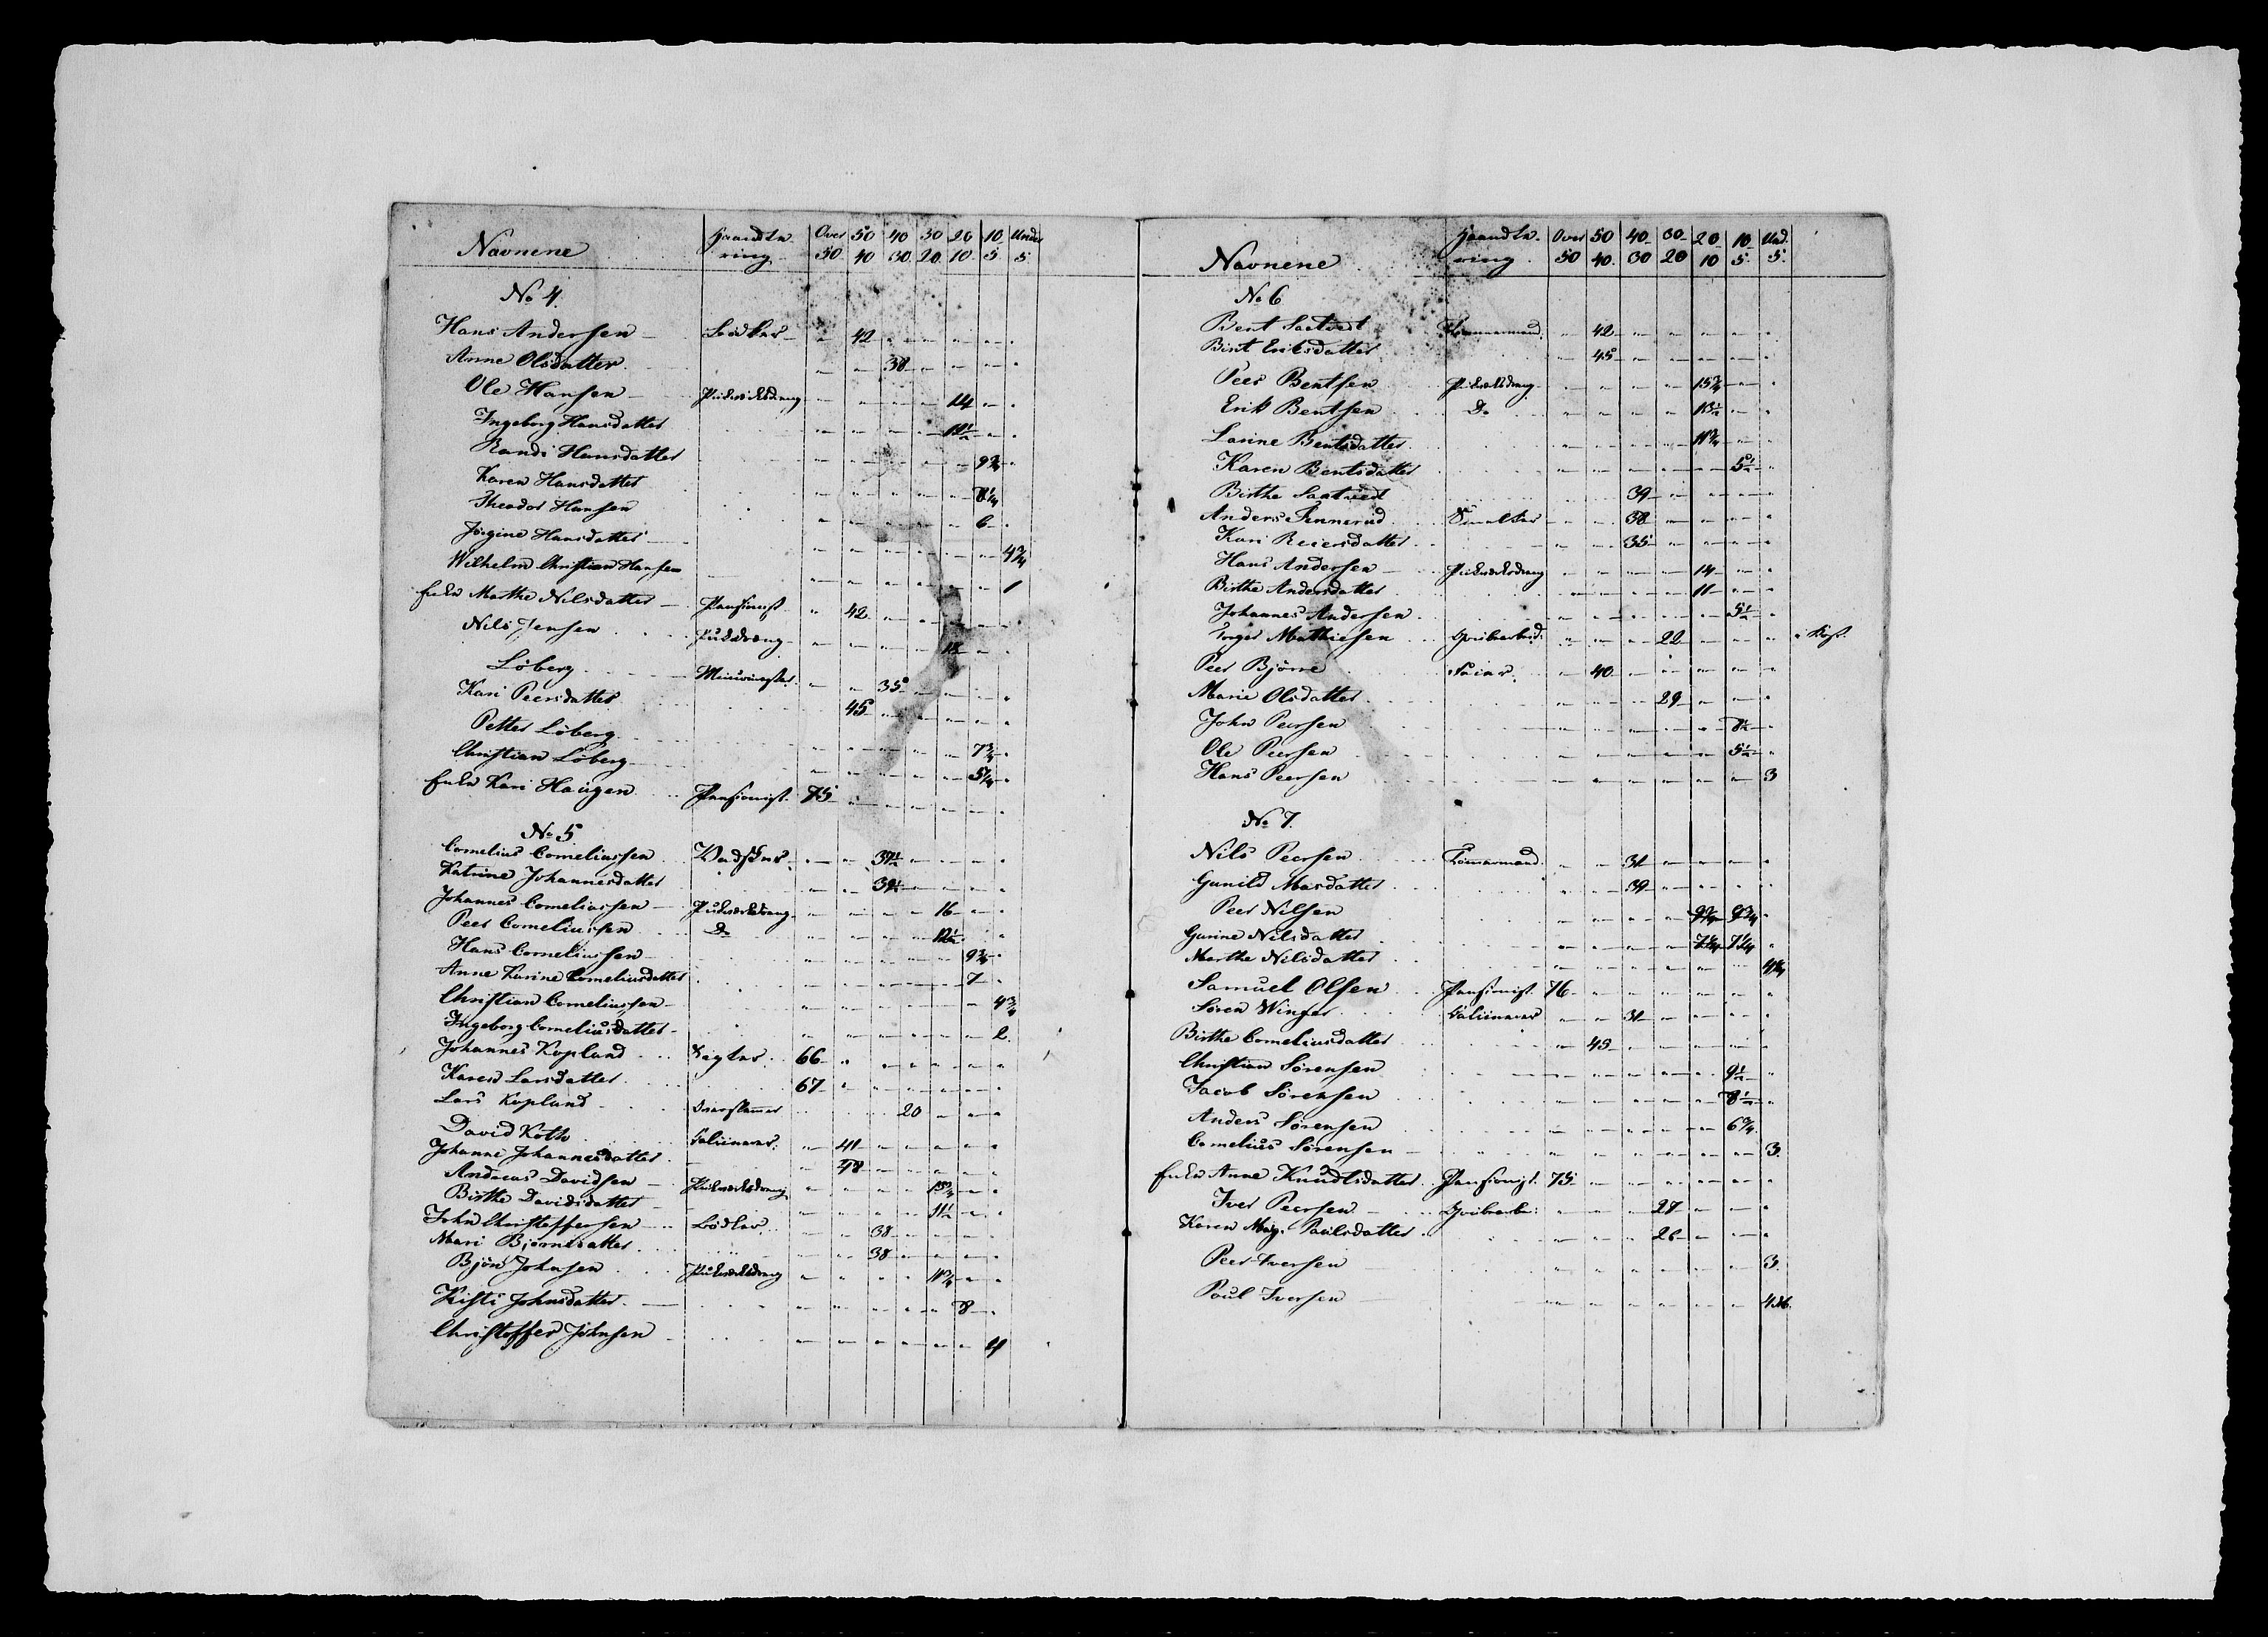 Navnene Haandte- Over 50 40 30 20 10 Under
ring 50 40 30 20 10 5 5
No 4.
Hans Andersen Bödker 42
Anne Olsdatter 38
Ole Hansen Pukverksdreng 14
Ingeborg Hansdatter
Randi Hansdatter 9¾
Karen Hansdatter 8¼
Theodor Hansen 6
Jörgine Hansdatter 4¾
Wilhelm Christian Hansen 1
Enke Marthe Nilsdatter Pensionist 42
Nils Jensen Pukdreng 18
Löberg 35
Kari Peersdatter 45
Petter Löberg 7¾
Christian Löberg 5¼
Enke Kari Haugen Pensionist 75
No 5
Cornelius Corneliussen Vadsker 37½
Katrine Johannesdatter 39½
Johannes Corneliussen Pukverksdreng 16
Peer Corneliussen Do 12½
Hans Corneliussen 9¾
Anne Karine Corneliusdatter 7
Christian Corneliussen 4¾
Ingeborg Corneliusdatter 2
Johannes Kopland 66
Karen Larsdatter 67
Lars Kopland 20
David Koth Gaütinaver 41
Johanne Johannesdatter 48
Andreas Davidsen Pukverksdreng 15¾
Birthe Davidsdatter 11½
John Christoffersen Bödker 38
Mari Björnsdatter 38
Björn Johnsen Pukverksdreng
Kisti Johnsdatter 8
Christoffer Johnsen 4
Navnene Haandte- Over 50 40 30 20 10 Und.
ring 50 40 30 20 10 5 5.
No 6
Bent Saatvedt Tömmermand 42
Berit Eriksdatter 45
Peer Bentsen Pukverksdreng 15¾
Erik Bentsen Do 13½
Larine Bentsdatter
Karen Bentsdatter 5½
Birthe Saatvedt 39
Anders Tennerud Smelter 38
Kari Reiersdatter 35
Hans Andersen Pukverksdreng 14
Birthe Andersdatter 11
Johannes Andersen 5½
Torger Mathiesen Grubearbeid: 22
Peer Björne 40
Marie Olsdatter 29
John Peersen 8½
Ole Peersen 5½
Hans Peersen 3
No 7.
Nils Peersen Tömmermand 31
Gunild Marsdatter 39
Peer Nilsen 9¾ 9¾
Gurine Nilsdatter 7¼ 7¼
Marthe Nilsdatter
Samuel Olsen Pensionist 76
Sören Winger 31
Birthe Corneliusdatter 43
Christian Sörensen 9½
Jacob Sörensen 8½
Anders Sörensen 6¾
Cornelius Sörensen 3
Enke Anne Knudtsdatter Pensionist 75
Iver Peersen Grubearb: 27
Karen Marg. Paulsdatter 26
Peer Iversen 3
Poul Iversen 4 M.